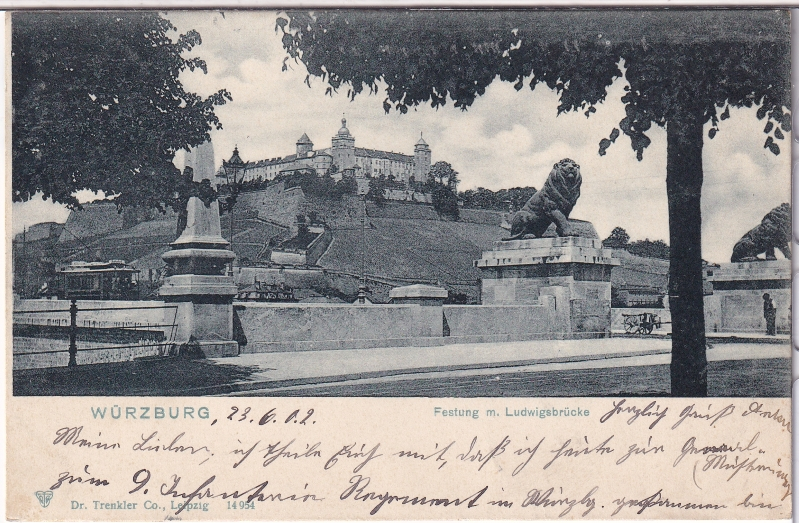 WÜRZBURG, 23.6.02.
Festung m. Ludwigsbrücke
Herzlich Gruß
Meine Lieben, ich theile Euch mit, daß ich heute zur General-
Musterung
zum 9. Infanterie Regement in Würzbg. gekommen bin
Dr. Trenkler Co., Leipzig 14954